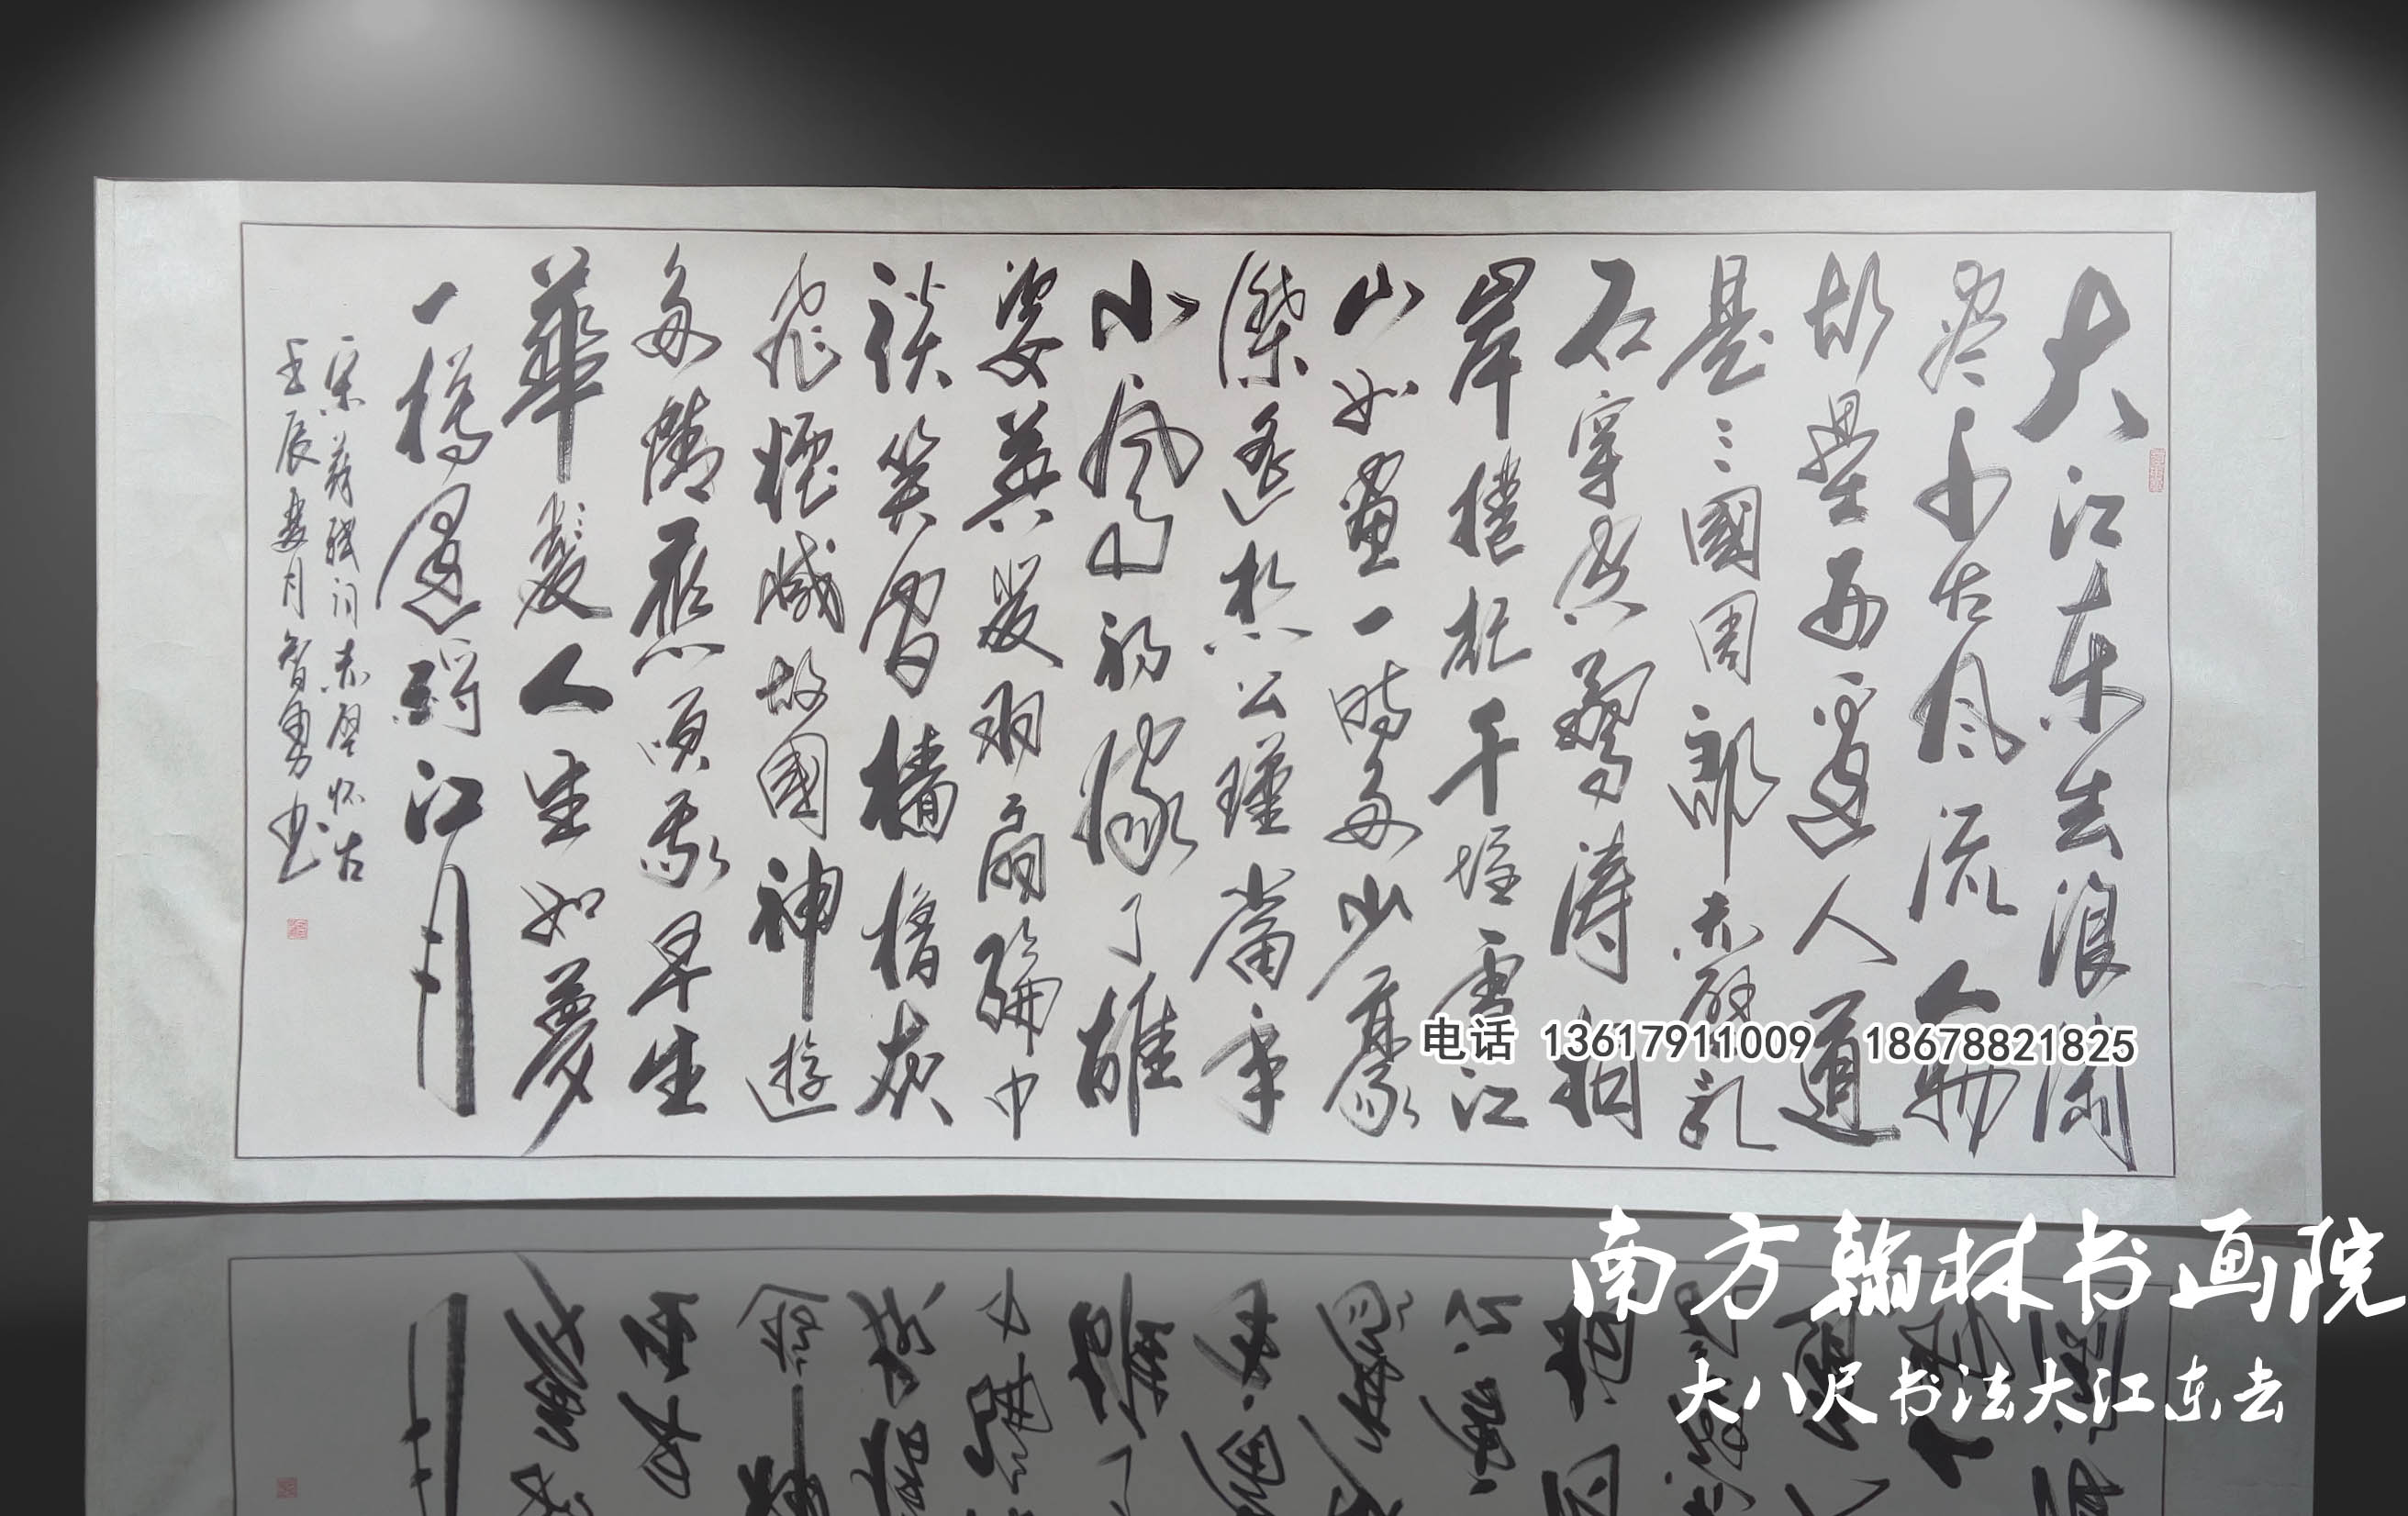 大江东去浪淘
尽千古风流人物
故壘西邊人道
是三國周郎赤壁乱
石穿空驚涛拍
岸捲起千堆雪江
山如畫一時多少豪
傑遙想公瑾當年
小喬初嫁了雄
姿英发羽扇綸巾
談笑間檣櫓灰
飛煙滅故國神遊
多情應笑我早生
華髮人生如夢
一樽還酹江月
宋蘇轼词赤壁怀古
壬辰月智勇书
电话 13617911009 18678821825
南方翰林书画院
大八尺书法大江东去